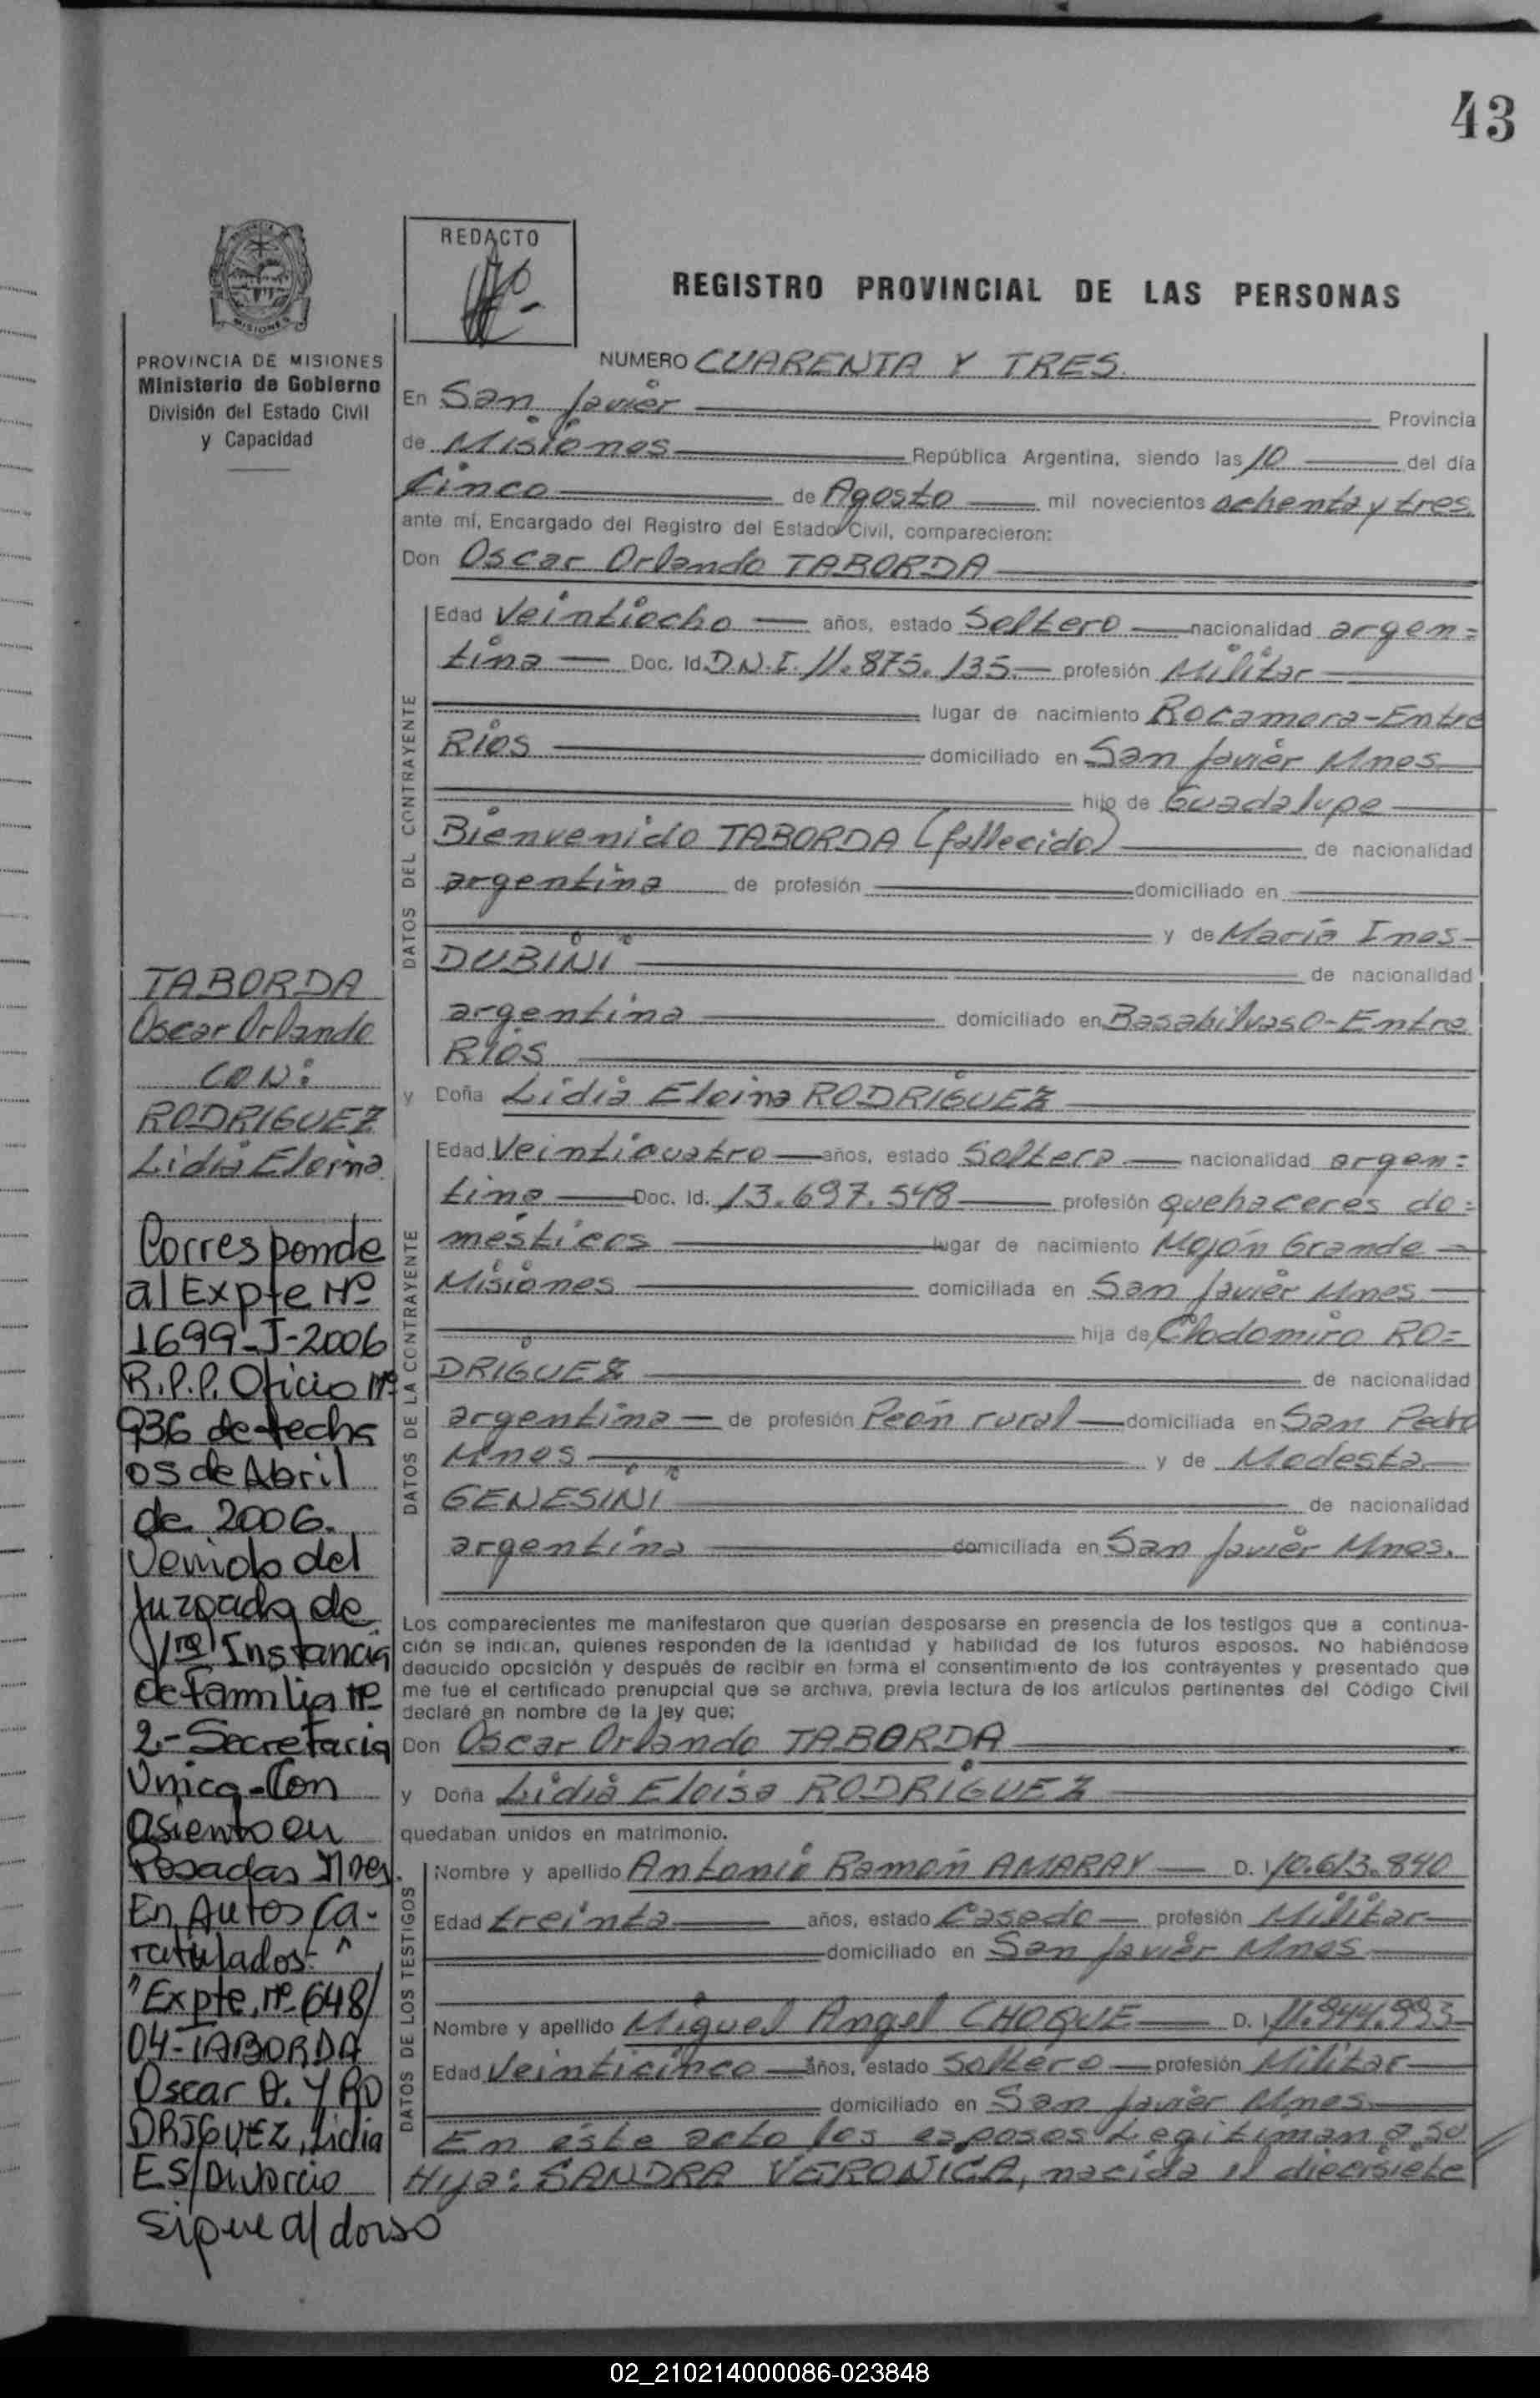 43
REDACTO
REGISTRO PROVINCIAL DE LAS PERSONAS
MISIONES
PROVINCIA DE MISIONES
Ministerio de Gobierno
División del Estado Civil
y Capacidad
NUMERO CUARENTA Y TRES.
En San Javier Provincia
de Misiones República Argentina, siendo las 10 del día
Cinco de Agosto mil novecientos ochenta y tres
ante mí, Encargado del Registro del Estado Civil, comparecieron:
Don Oscar Orlando TABORDA
DATOS DEL CONTRAYENTE
Edad Veintiocho años, estado Soltero nacionalidad argen=
tina Doc. Id. D.N.I. 11.875.135 profesión Militar
lugar de nacimiento Rocamora-Entre
Ríos domiciliado en San Javier Mnes
hijo de Guadalupe
Bienvenido TABORDA (fallecido) de nacionalidad
argentina de profesión domiciliado en
y de María Ines
DUBINI de nacionalidad
argentina domiciliado en Basabilvaso-Entre
Ríos
y Doña Lidia Eloina RODRIGUEZ
DATOS DE LA CONTRAYENTE
Edad Veinticuatro años, estado Soltera nacionalidad argen=
tina Doc. Id. 13.697.548 profesión quehaceres do=
mésticos lugar de nacimiento Mojón Grande
Misiones domiciliada en San Javier Mnes
hija de Clodomiro RO=
DRIGUEZ de nacionalidad
argentina de profesión Peón rural domiciliada en San Pedro
Mnes y de Modesta
GENESINI de nacionalidad
argentina domiciliada en San Javier Mnes.
Los comparecientes me manifestaron que querían desposarse en presencia de los testigos que a continua-
ción se indican, quienes responden de la identidad y habilidad de los futuros esposos. No habiéndose
deducido oposición y después de recibir en forma el consentimiento de los contrayentes y presentado que
me fue el certificado prenupcial que se archiva, previa lectura de los artículos pertinentes del Código Civil
declaré en nombre de la ley que:
Don Oscar Orlando TABORDA
y Doña Lidia Eloisa RODRIGUEZ
quedaban unidos en matrimonio.
DATOS DE LOS TESTIGOS
Nombre y apellido Antonio Ramón AMARAY D. I. 10.613.840
Edad treinta años, estado Casado profesión Militar
domiciliado en San Javier Mnes
Nombre y apellido Miguel Angel CHOQUE D. I. 11.944.993
Edad Veinticinco años, estado Soltero profesión Militar
domiciliado en San Javier Mnes
En éste acto los esposos Legitiman a su
Hija: SANDRA VERONICA, nacida el diecisiete
TABORDA
Oscar Orlando
CON:
RODRIGUEZ
Lidia Eloina
Corresponde
al Expte Nº
1699-J-2006
R.P.P. Oficio Nº
936 de fecha
05 de Abril
de 2006.
Venido del
Juzgado de
1ra Instancia
de Familia Nº
2.- Secretaria
Unica-Con
asiento en
Posadas Mnes.
En Autos Ca-
ratulados: "
"Expte. nº 648/
04-TABORDA
Oscar O. Y RO
DRIGUEZ, Lidia
E S/Divorcio
sigue al dorso
02_210214000086-023848